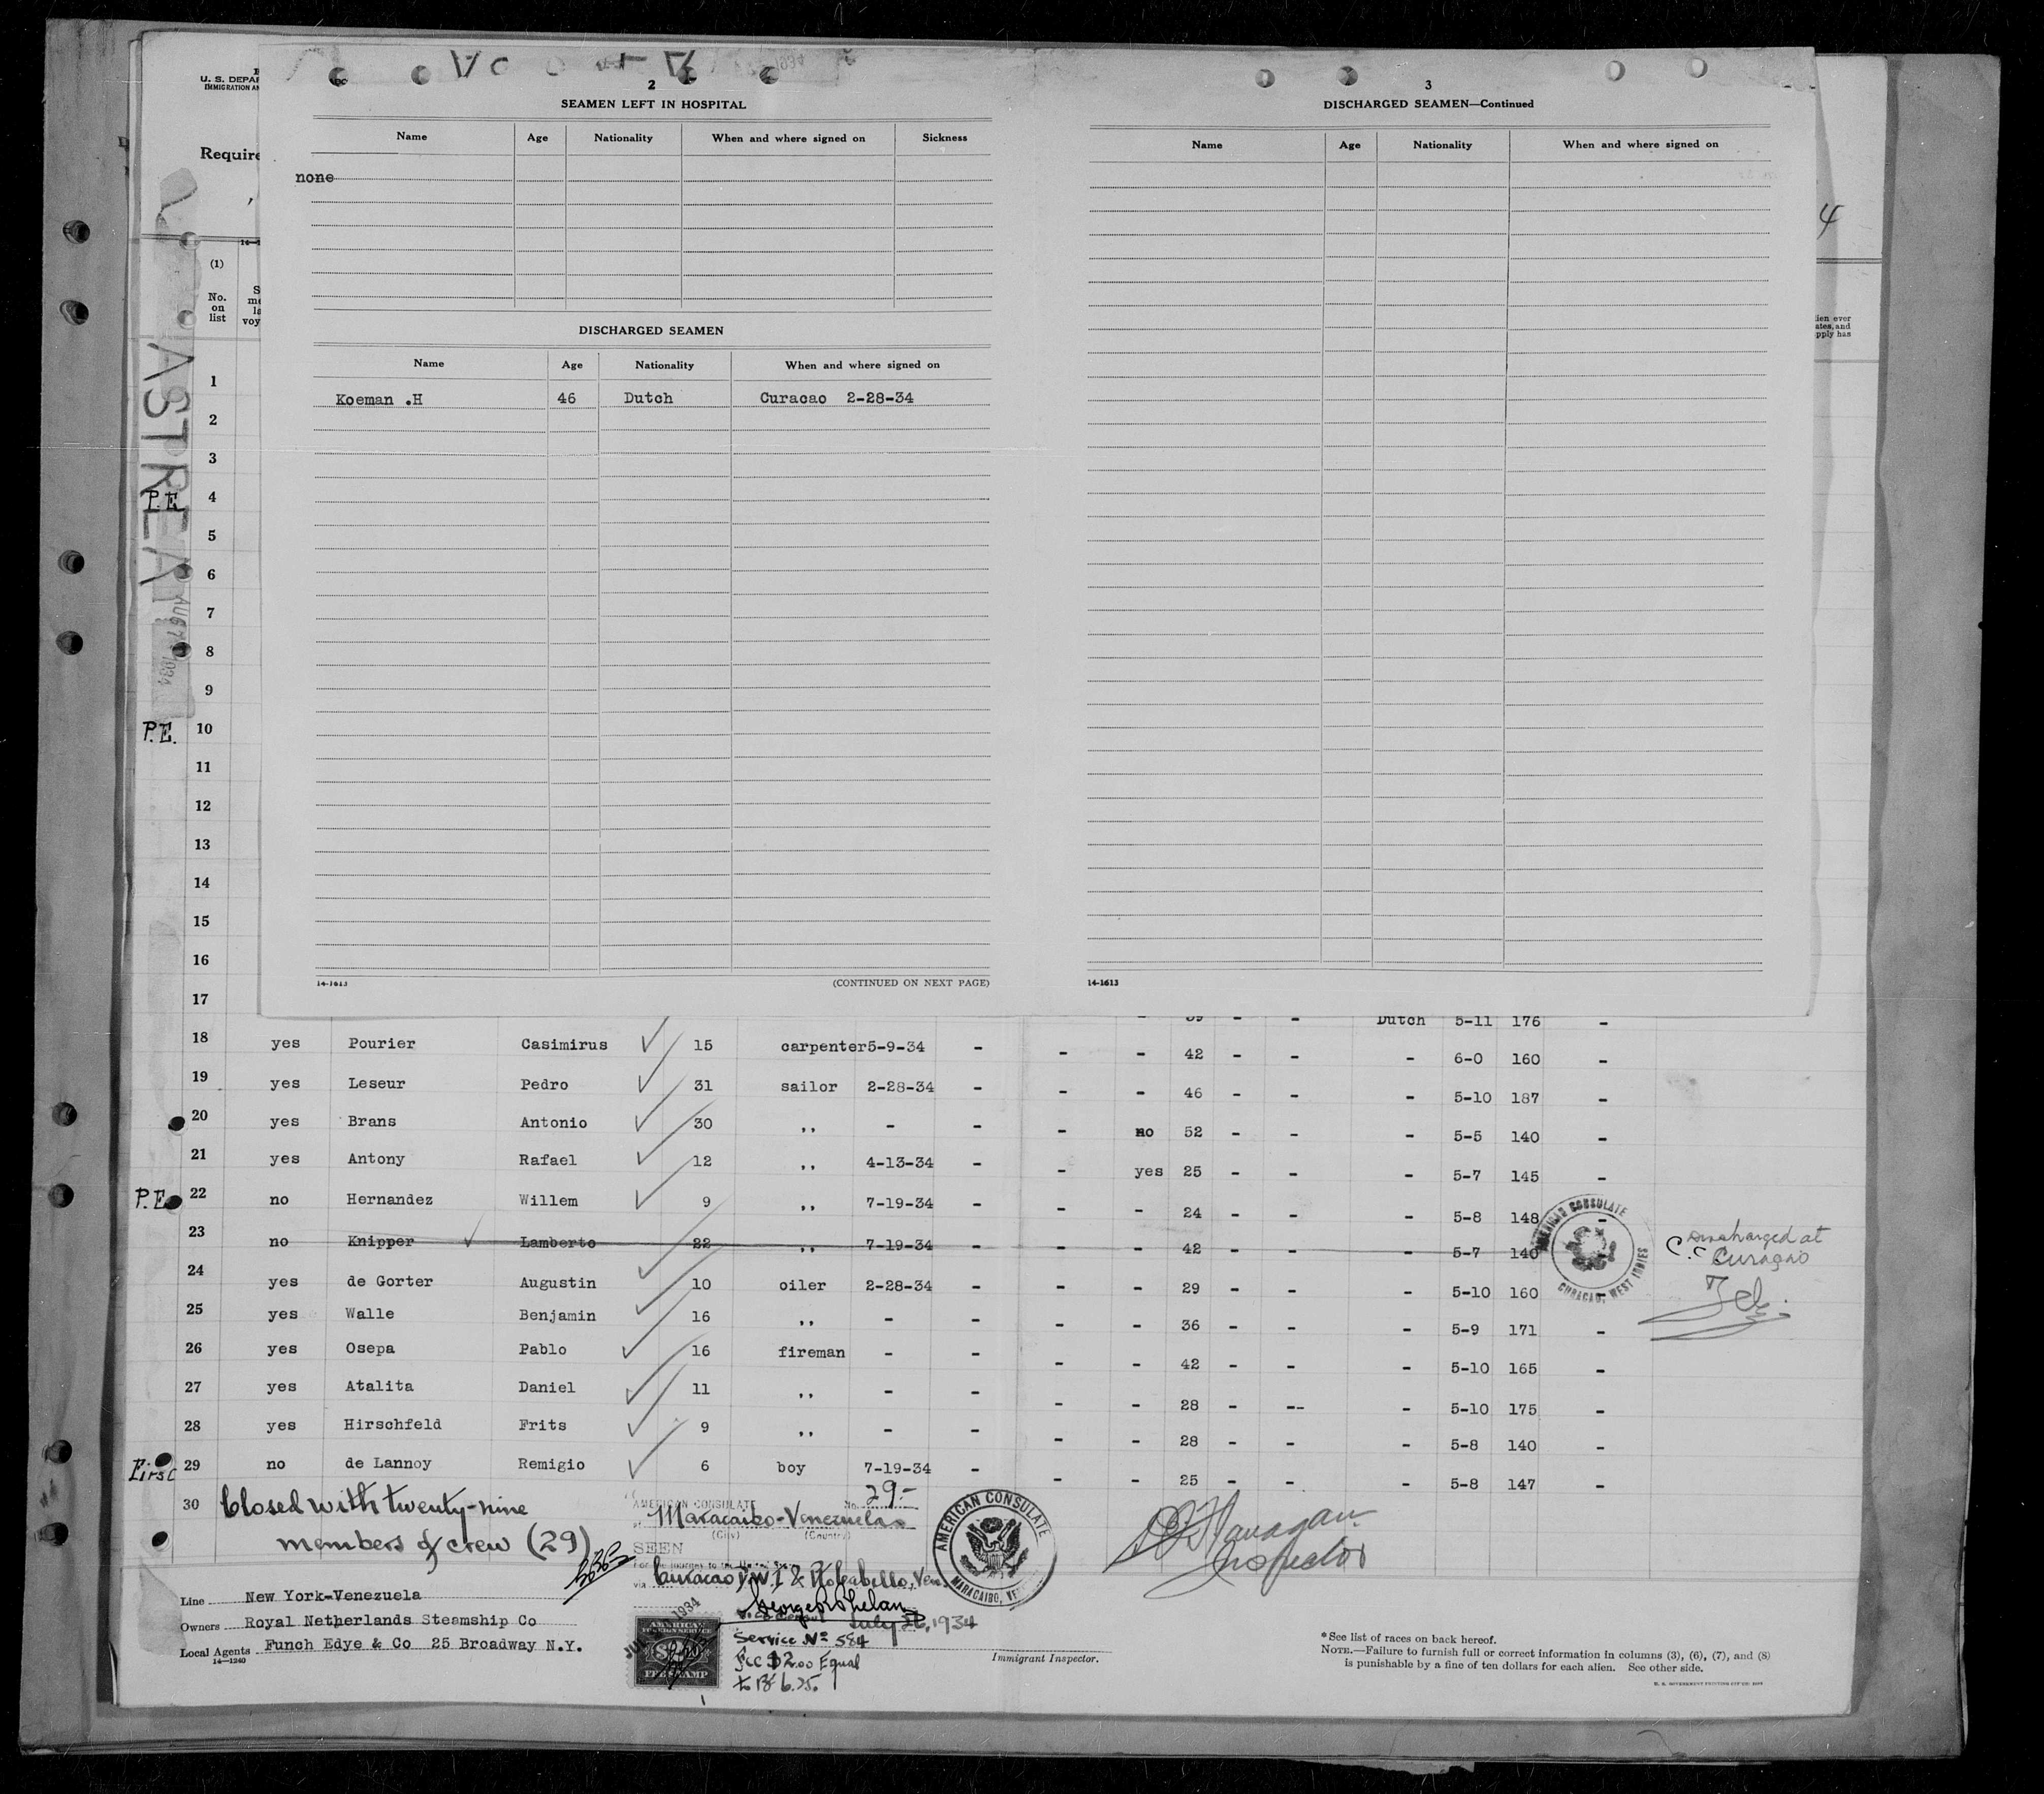 2
SEAMEN LEFT IN HOSPITAL
Name Age Nationality When and where signed on Sickness
none
DISCHARGED SEAMEN
Name Age Nationality When and where signed on
Koeman .H 46 Dutch Curacao 2-28-34
14-1613 (CONTINUED ON NEXT PAGE)
3
DISCHARGED SEAMEN—Continued
Name Age Nationality When and where signed on
14-1613
U. S. DEPAR
IMMIGRATION AN
Require
4
(1)
No. on list
lien ever
ates, and
pply has
ASTREA
AUG 1934
1
2
3
P.E. 4
5
6
7
8
9
P.E. 10
11
12
13
14
15
16
17 39 - - Dutch 5-11 176 -
18 yes Pourier Casimirus 15 carpenter 5-9-34 - - - 42 - - - 6-0 160 -
19 yes Leseur Pedro 31 sailor 2-28-34 - - - 46 - - - 5-10 187 -
20 yes Brans Antonio 30 ,, - - - no 52 - - - 5-5 140 -
21 yes Antony Rafael 12 ,, 4-13-34 - - yes 25 - - - 5-7 145 -
P.E. 22 no Hernandez Willem 9 ,, 7-19-34 - - - 24 - - - 5-8 148 -
23 no Knipper Lamberto 22 ,, 7-19-34 - - - 42 - - - 5-7 140
Discharged at
Curaçao
AMERICAN CONSULATE
CURACAO, WEST INDIES
24 yes de Gorter Augustin 10 oiler 2-28-34 - - - 29 - - - 5-10 160 -
25 yes Walle Benjamin 16 ,, - - - - 36 - - - 5-9 171 -
26 yes Osepa Pablo 16 fireman - - - - 42 - - - 5-10 165 -
27 yes Atalita Daniel 11 ,, - - - - 28 - -- - 5-10 175 -
28 yes Hirschfeld Frits 9 ,, - - - - 28 - - - 5-8 140 -
First 29 no de Lannoy Remigio 6 boy 7-19-34 - - - 25 - - - 5-8 147 -
30 Closed with twenty-nine
members of crew (29)
AMERICAN CONSULATE No. 29.-
Maracaibo-Venezuela
(City) (Country)
SEEN
via Curacao, W.I & Pto Cabello, Ven.
George R Phelan
Vice Consul July 26, 1934
Service Nº 584
Fee $2.00 Equal
to Bs 6.75.
AMERICAN CONSULATE
MARACAIBO, VEN
AMERICAN
FOREIGN SERVICE
FEE STAMP
Flanagan
Inspector
Immigrant Inspector.
Line New York-Venezuela
Owners Royal Netherlands Steamship Co
Local Agents Funch Edye & Co 25 Broadway N.Y.
14—1240
*See list of races on back hereof.
NOTE.—Failure to furnish full or correct information in columns (3), (6), (7), and (8)
is punishable by a fine of ten dollars for each alien. See other side.